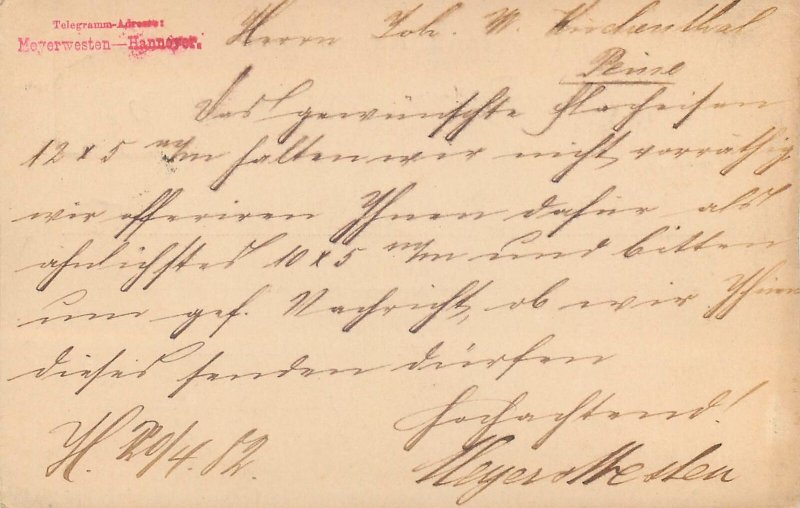 Telegramm-Adresse:
Meyerwesten—Hannover.
Herrn Joh. W.
Peine
Das gewünschte Flacheisen
12 x 5 m/m halten wir nicht vorräthig
wir offeriren Ihnen dafür als
ähnlichstes 10 x 5 m/m und bitten
um gef. Nachricht, ob wir Ihnen
dieses senden dürfen
Hochachtend!
H. 20/4. 82.
Meyer & Westen